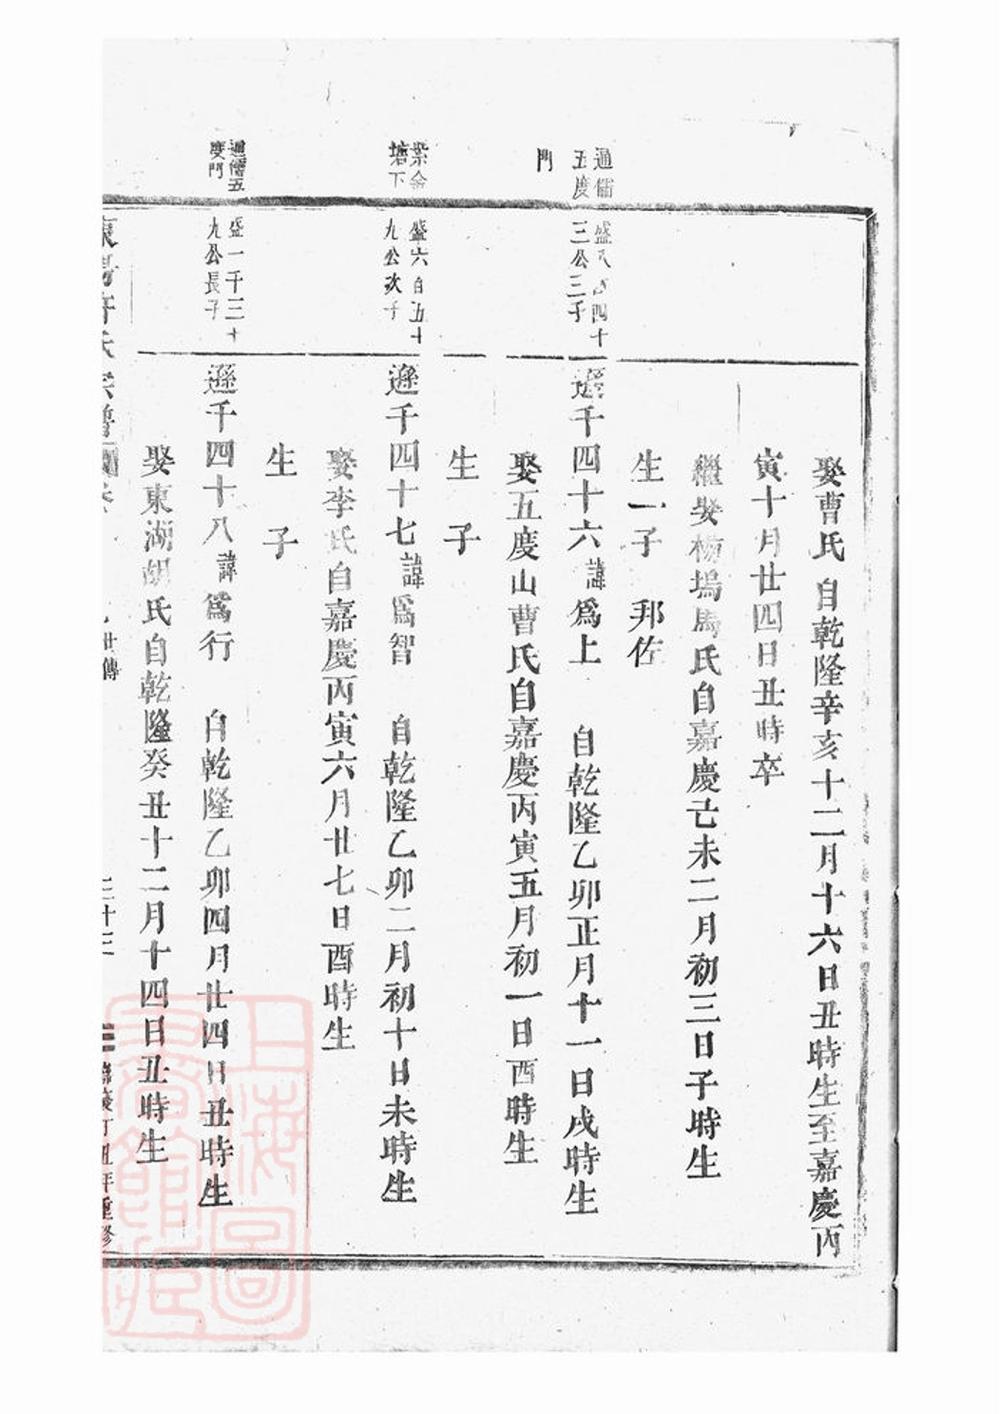 娶曹氏 自乾隆辛亥十二月十六日丑時生至嘉慶丙
寅十月廿四日丑時卒
繼娶楊塢馬氏自嘉慶己未二月初三日子時生
生一子 邦佐
通儒五度門
盛八百四十三公三子
遜千四十六諱爲上 自乾隆乙卯正月十一日戌時生
娶五度山曹氏自嘉慶丙寅五月初一日酉時生
生 子
紫金塘下
盛六百五十九公次子
遜千四十七諱爲智 自乾隆乙卯二月初十日未時生
娶李氏自嘉慶丙寅六月廿七日酉時生
生 子
通儒五度門
盛一千三十九公長子
遜千四十八諱爲行 自乾隆乙卯四月廿四日丑時生
娶東湖胡氏自乾隆癸丑十二月十四日丑時生
東陽許氏宗譜 世傳 三十三 丁丑年重修
上海圖書館藏